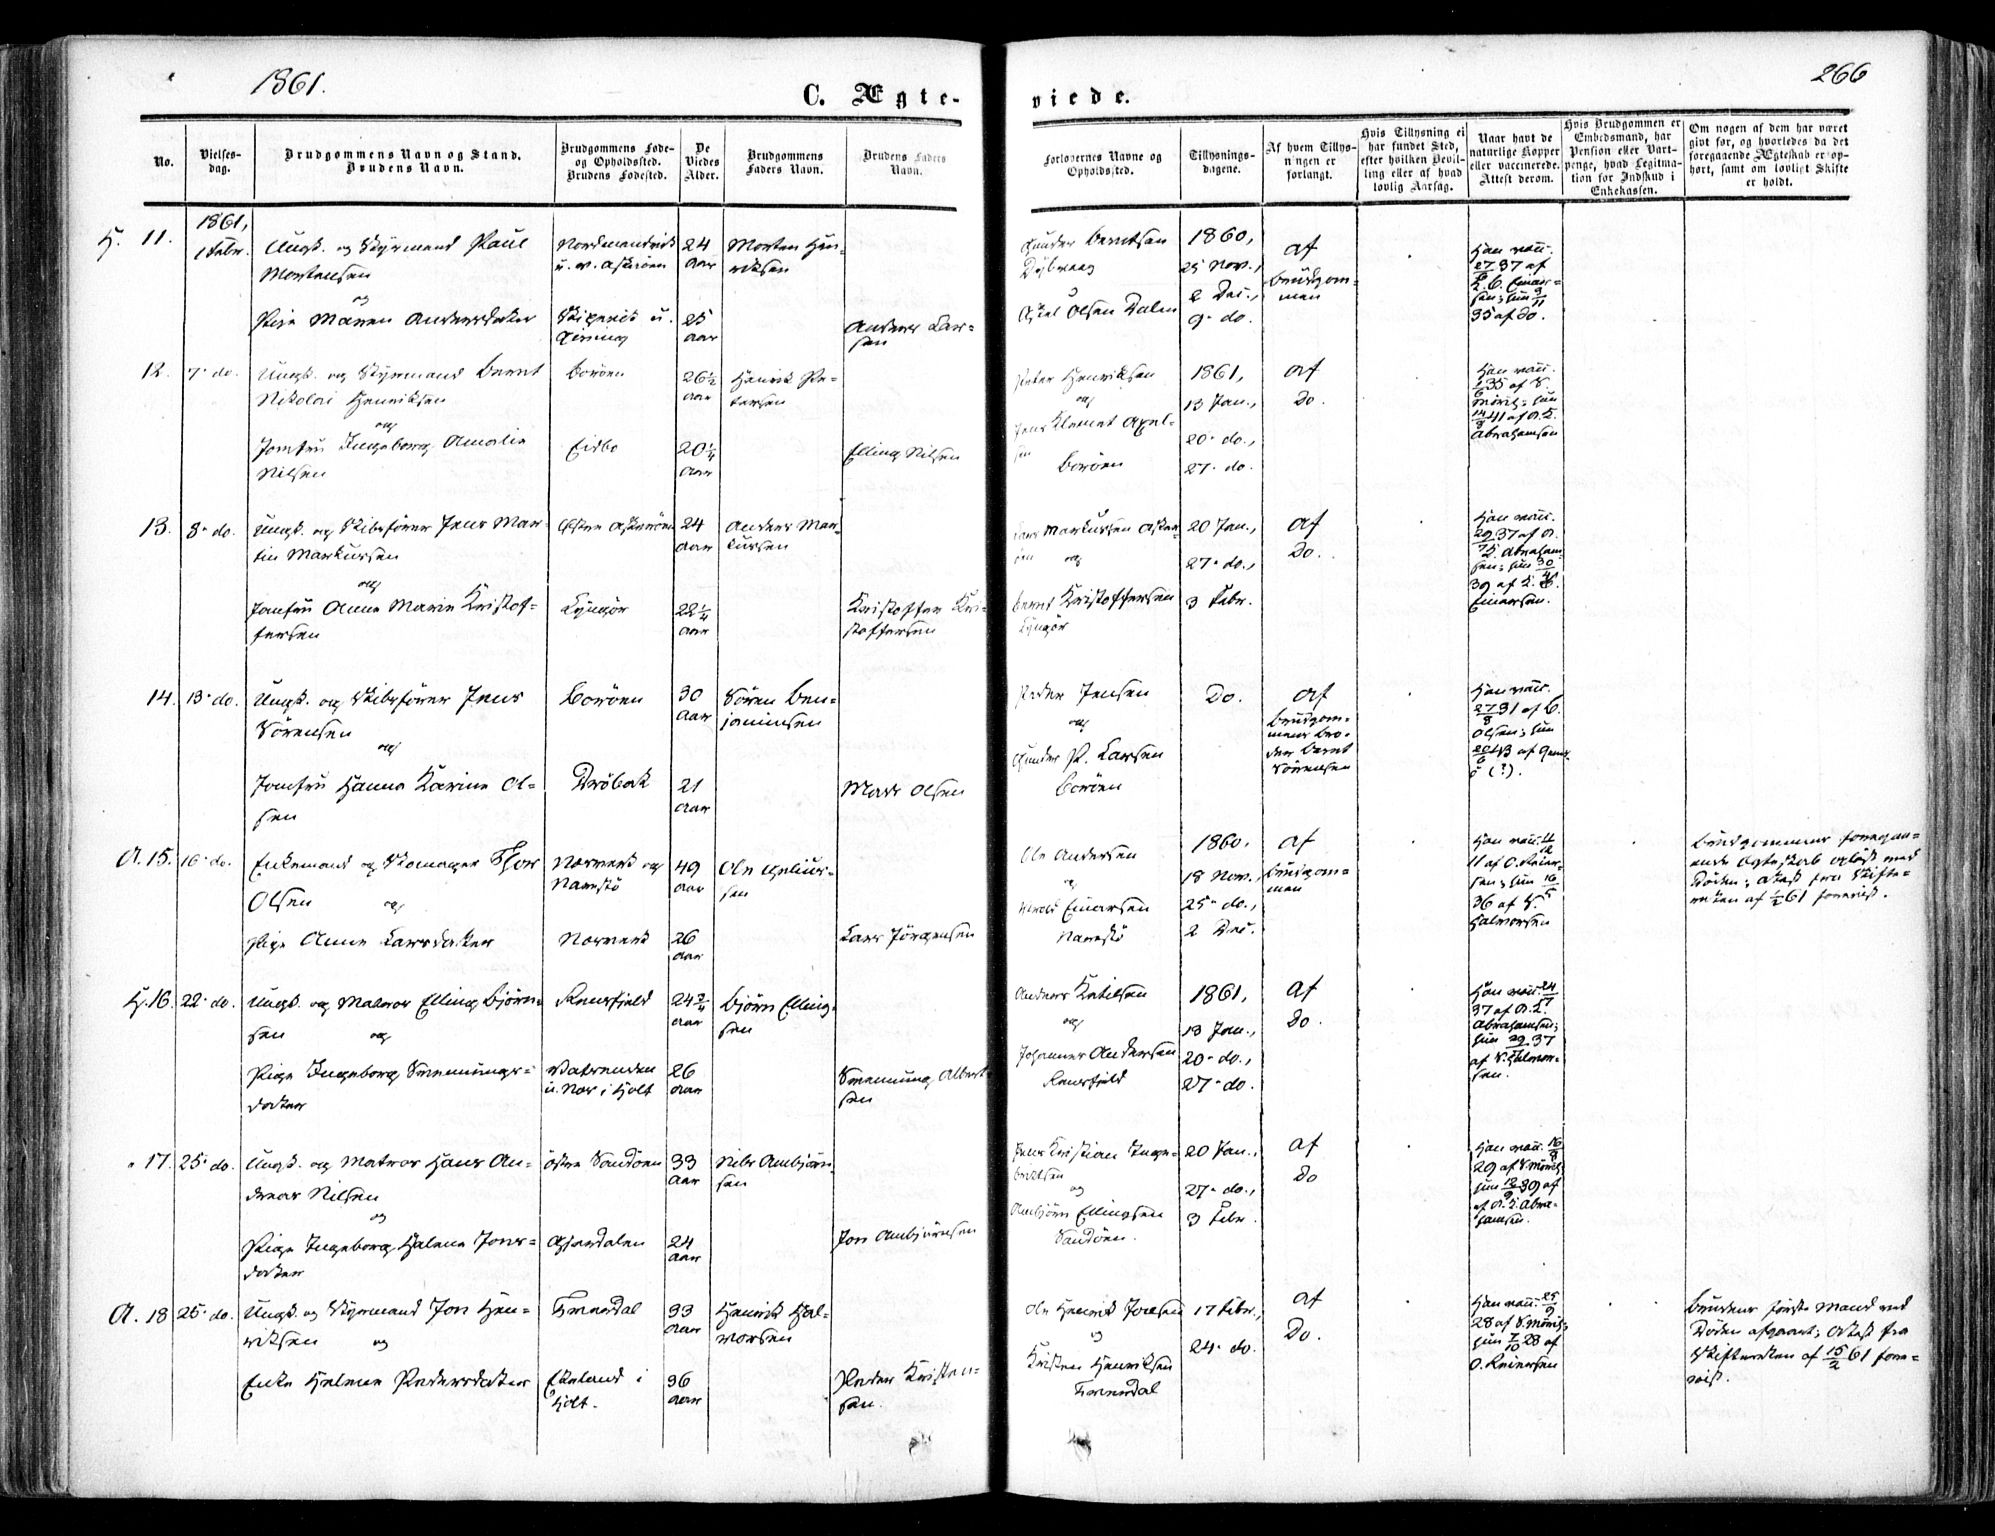 1861.
C. Ægte-
viede.
266
No.
Vielses-
dag.
Brudgommens Navn og Stand.
Brudens Navn.
Brudgommens Føde-
og Opholdssted.
Brudens Fødested.
De
Viedes
Alder.
Brudgommens
Faders Navn.
Brudens Faders
Navn.
Forlovernes Navne og
Opholdssted.
Tillysnings-
dagene.
Af hvem Tillys-
ningen er
forlangt.
Hvis Tillysning ei
har fundet Sted,
efter hvilken Bevil-
ling eller af hvad
lovlig Aarsag.
Naar havt de
naturlige Kopper
eller vaccinerede.
Attest derom.
Hvis Brudgommen er
Embedsmand, har
Pension eller Vart-
penge, hvad Legitima-
tion for Indskud i
Enkekassen.
Om nogen af dem har været
gift før, og hvorledes da det
foregaaende Ægteskab er op-
hørt, samt om lovligt Skifte
er holdt.
H. 11.
1861,
1 Febr.
Ungk. og Styrmand Paul
Mortensen
og
Pige Maren Andersdatter
24
Aar
25
Aar
Morten Hen-
riksen
Anders Lar-
sen
Gunder Berntsen
Dybvaag
Aksel Olsen Dalen
1860,
25 Nov.,
2 Dec.,
9 do.
af
Brudgom-
men
Han vacc.
27/6 37 af
sen; hun 9/11
35 af do.
12. 7 do.
Ungk. og Styrmand Bernt
Nikolai Henriksen
og
Jomfru Ingeborg Amalie
Nilsen
Borøen
Eidbo
26½
Aar
20¼
Aar
Henrik Pe-
tersen
Elling Nilsen
Peter Henriksen
og
Jens Klemet Axel-
sen
Borøen
1861,
13 Jan.,
20 do.,
27 do.
af
Do.
Han vacc.
35 af S.
Mörich; hun
14/8 41 af A. L.
Abrahamsen
13. 8 do.
Ungk. og Skibsfører Jens Mar-
tin Markussen
og
Jomfru Anne Marie Kristof-
fersen
Østre Askerøen
Lyngør
24
Aar
22¼
Aar
Anders Mar-
kussen
Kristoffer Kri-
stoffersen
Lars Markussen Asker-
øen og
Bernt Kristoffersen
Lyngør
20 Jan.,
27 do.,
3 Febr.
af
Do.
Han vacc.
29/7 37 af A.
L. Abraham-
sen; hun 30/4
39 af L. C.
Einersen.
14. 13 do.
Ungk. og Skibsfører Jens
Sörensen
og
Jomfru Hanna Karine Ol-
sen
Borøen
Dröbak
30
Aar
21
Aar
Sören Ben-
jaminsen
Mads Olsen
Peder Jensen
og
Gunder P. Larsen
Borøen
Do.
af
Brudgom-
mens Bro-
der Bernt
Sörensen
Han vacc.
27/8 31 af C.
Olsen; hun
20/6 43 af
(?).
A. 15. 16 do.
Enkemand og Skomager Thor
Olsen og
Pige Anne Larsdatter
Næsverk og
Narestö
Næsverk
49
Aar
26
Aar
Lars Jörgensen
Ole Andersen
og
Einersen
Narestö
1860.
18 Nov.,
25 do.,
2 Dec.
af
Brudgom-
men
Han vacc. 11/12
11 af O. Reier-
sen; hun 16/5
36 af S.
Halvorsen
Brudgommens foregaa-
ende Ægteskab oplöst ved
Döden; Attest fra Skifte-
retten af 61 forevist.
H. 16. 22 do.
Ungk. og Matros Elling Björn-
sen og
Pige Ingeborg Svenningsdatter
u. Næs i Holt
24¾
Aar
26
Aar
Björn Elling-
sen
Svenning Albert-
sen
Anders Ketilsen
og
Johannes Andersen
1861,
13 Jan.,
20 do.,
27 do.
af
Do.
Han vacc. 24/7
37 af A. L.
Abrahamsen;
hun 29/7 37
af S. Halvor-
sen.
" 17. 25 do.
Ungk. og Matros Hans An-
dreas Nilsen
og
Pige Ingeborg Helene Jons-
datter
Östre Sandöen
33
Aar
24
Aar
Nils Ambjörn-
sen
Jon Ambjörnsen
Jens Kristian Inge-
briktsen
og
Ambjörn Ellingsen
Sandöen.
20 Jan.,
27 do.,
3 Febr.
af
Do
Han vacc. 16/8
29 af S. Mörich;
hun 12/9 39 af
af A. L. Abra-
hamsen.
A. 18 25 do.
Ungk. og Styrmand Jon Hen-
riksen og
Enke Helene Pedersdatter
Tverdal
Ekeland i
Holt.
33
Aar
36
Aar
Henrik Hal-
vorsen
Peder Kristen-
sen.
Ole Henrik Joelsen
og
Kristen Henriksen
Tverdal
17 Febr.,
24 do.
af
Do.
Han vacc. 25/9
28 af S. Mörich;
hun 7/10 28 af
O. Reiersen
Brudens förste Mand ved
Döden afgaaet; Attest fra
Skifteretten af 15/2 61 fore-
vist.